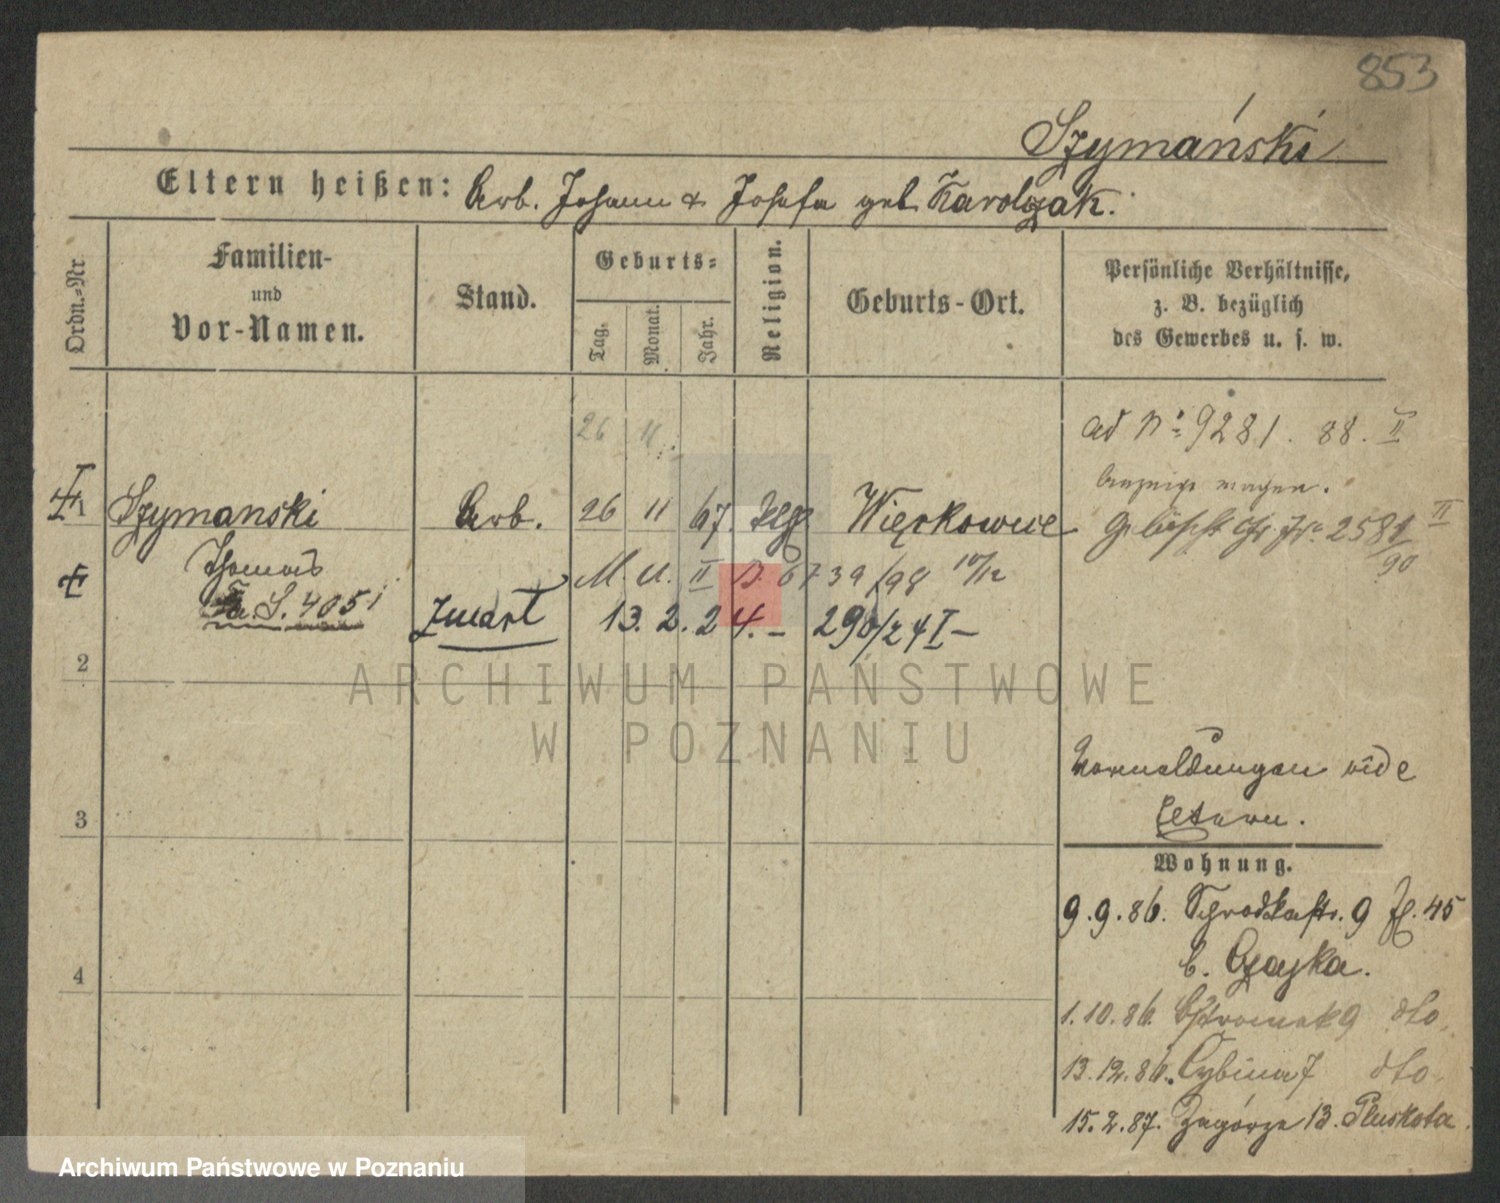 853
Szymański
Eltern heißen: Arb. Johann & Josefa geb Karolyak.
Ordn.-Nr.
Familien-
und
Vor-Namen.
Stand.
Geburts-
Tag.
Monat.
Jahr.
Religion.
Geburts-Ort.
Persönliche Verhältnisse,
z. B. bezüglich
des Gewerbes u. s. w.
26 11.
ad No 9281. 88. II
Anzeige wegen.
1 Szymanski Arb. 26 11 67. Więckowice
2581/90 II
Thomas
M. U. II B. 6739/98 10/12
Fa. S. 4051
13. 2. 24.- 290/24 I-
2
ARCHIWUM PAŃSTWOWE
W POZNANIU
Vormeldungen vide
Eltern.
3
Wohnung.
9.9.86. Schrodkastr. 9 45
b. Czayka.
4
1.10.86. Ostrowek 9 dto.
13.12.86. Cybina 7 dto.
15.2.87. Zagórze 13. Pluskota.
Archiwum Państwowe w Poznaniu